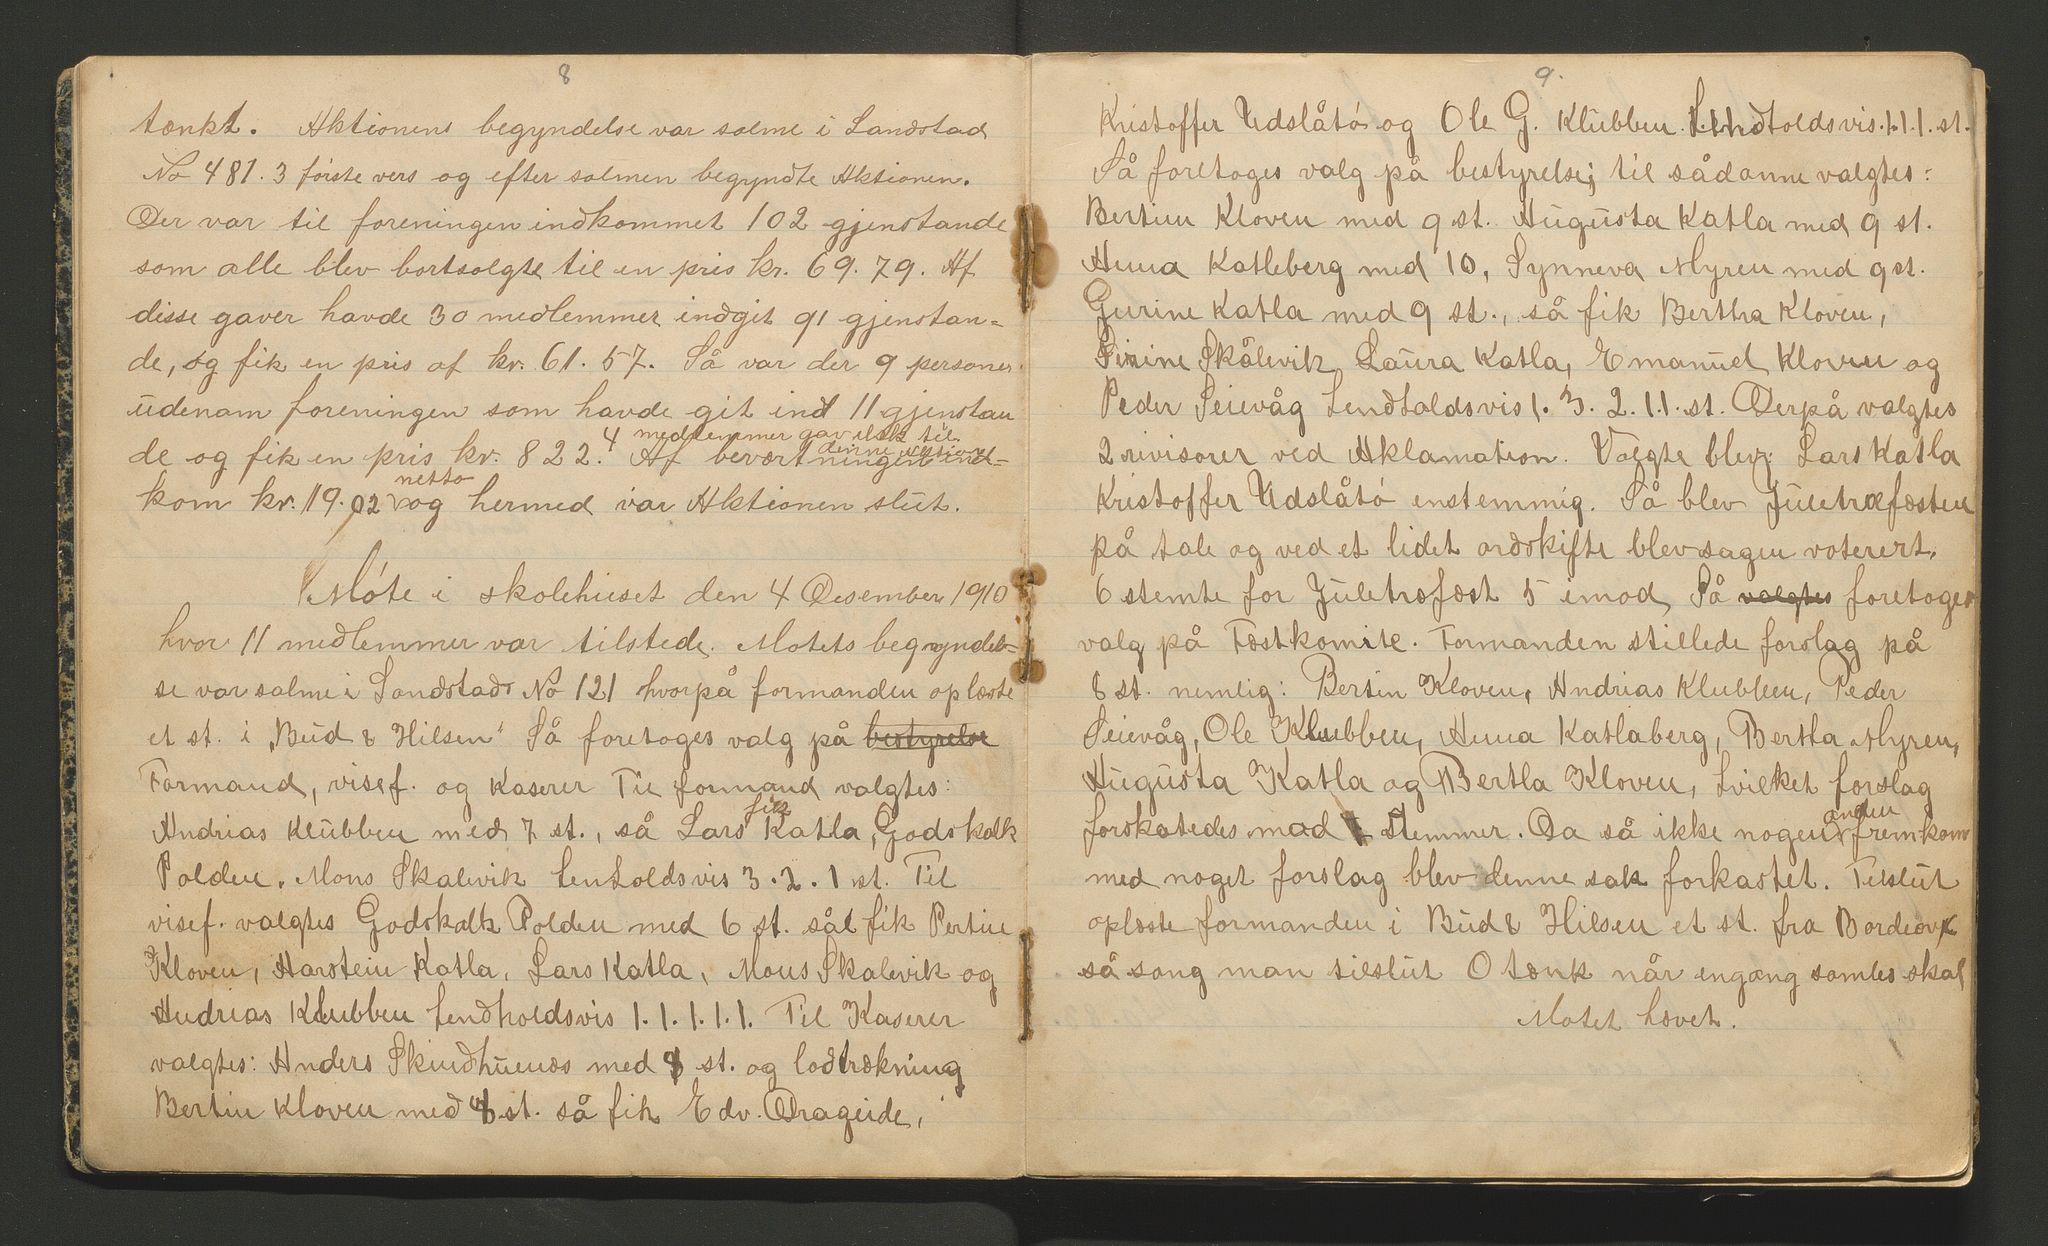 8
tænkt. Aktionens begyndelse var salme i Landstad
No 481. 3 første vers og efter salmen begyndte Aktionen.
Der var til foreningen indkommet 102 gjenstande
som alle blev bortsolgte til en pris kr. 69.79. Af
disse gaver havde 30 medlemmer indgit 91 gjenstan=
de, og fik en pris af kr. 61.57. Så var der 9 personer
udenam foreningen som havde git ind 11 gjenstan
4 medlemmer gav ilsk til
denne
de og fik en pris kr. 8 22. Af beværtningen ind=
netto
kom kr. 19.02 og hermed var Aktionen slut.
Møte i skolehuset den 4 Desember 1910
hvor 11 medlemmer var tilstede. Møtets begyndel=
se var salme i Landstads No 121 hvorpå formanden oplæste
et st. i „Bud & Hilsen" Så foretoges valg på bestyrelse
Formand, visef. og Kaserer Til formand valgtes:
fik
Andrias Klubben med 7 st., så Lars Katla, Godskalk
Polden. Mons Skalevik hentoldsvis 3.2.1 st. Til
visef. valgtes Godskalk Polden med 6 st. så fik Bertin
Kloven, Harstein Katla, Lars Katla, Mons Skalevik og
Andrias Klubben hendholdsvis 1.1.1.1.1. Til Kaserer
valgtes: Anders Skindhuenæs med 8 st. og lodtrækning
Bertin Kloven med 4 st. så fik Edv. Drageide,
9.
Kristoffer Udslåtø og Ole G. Klubben. hendtoldsvis.1.1.1.st.
Så foretoges valg på bestyrelse; til sådanne valgtes:
Bertin Kloven med 9 st. Augusta Katla med 9 st.
Anna Katleberg med 10, Synneva Myren med 9 st.
Gurine Katla med 9 st., så fik Bertha Kloven,
Sirine Skålevik, Laura Katla, Emanuel Kloven og
Peder Seievåg hendtoldsvis 1. 3. 2. 1.1. st. Derpå valgtes
2 rivisorer ved Aklamation. Valgte blev: Lars Katla
Kristoffer Udslåtø enstemmig. Så blev Juletræfæsten
på tale og ved et lidet ordskifte blev sagen voterert.
6 stemte for Juletræfæst 5 imod, Så valgtes foretoges
valg på Fæstkomite. Formanden stillede forslag på
8 st. nemlig: Bertin Kloven, Andrias Klubben, Peder
Seievåg, Ole Klubben, Anna Katlaberg, Bertha Myren,
Augusta Katla og Bertha Kloven, hvilket forslag
anden
forskatedes mod stemmer. Da så ikke nogen fremkom
med noget forslag blev denne sak forkastet. Tilslut
oplæste formanden i Bud & Hilsen et st. fra
så sang man tilslut O tænk når engang samles skal
Møtet hævet.